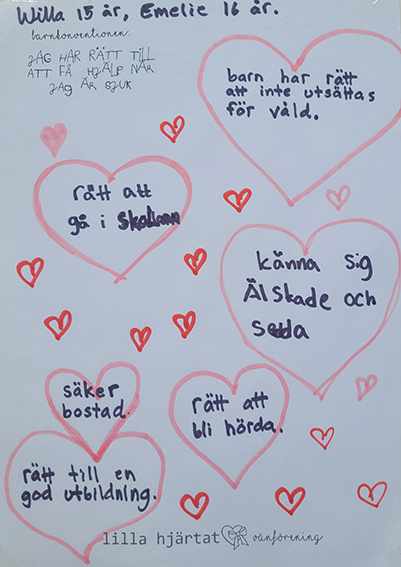 Willa 15 år, Emelie 16 år.
barnkonventionen:
JAG HAR RÄTT TILL
ATT FÅ HJÄLP NÄR
JAG ÄR SJUK
barn har rätt
att inte utsättas
för våld.
rätt att
gå i Skolan
känna sig
Älskade och
Sedda
säker
bostad.
rätt att
bli hörda.
rätt till en
god utbildning.
lilla hjärtat vänförening